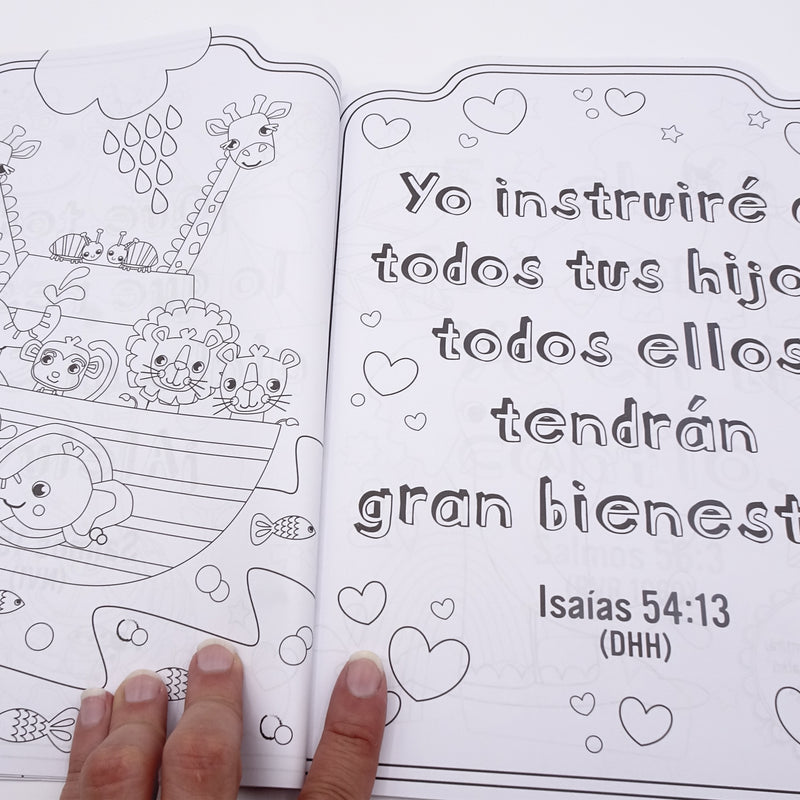 Yo instruiré a
todos tus hijo
todos ellos
tendrán
gran bienest
Isaías 54:13
(DHH)
Salmos 56:3